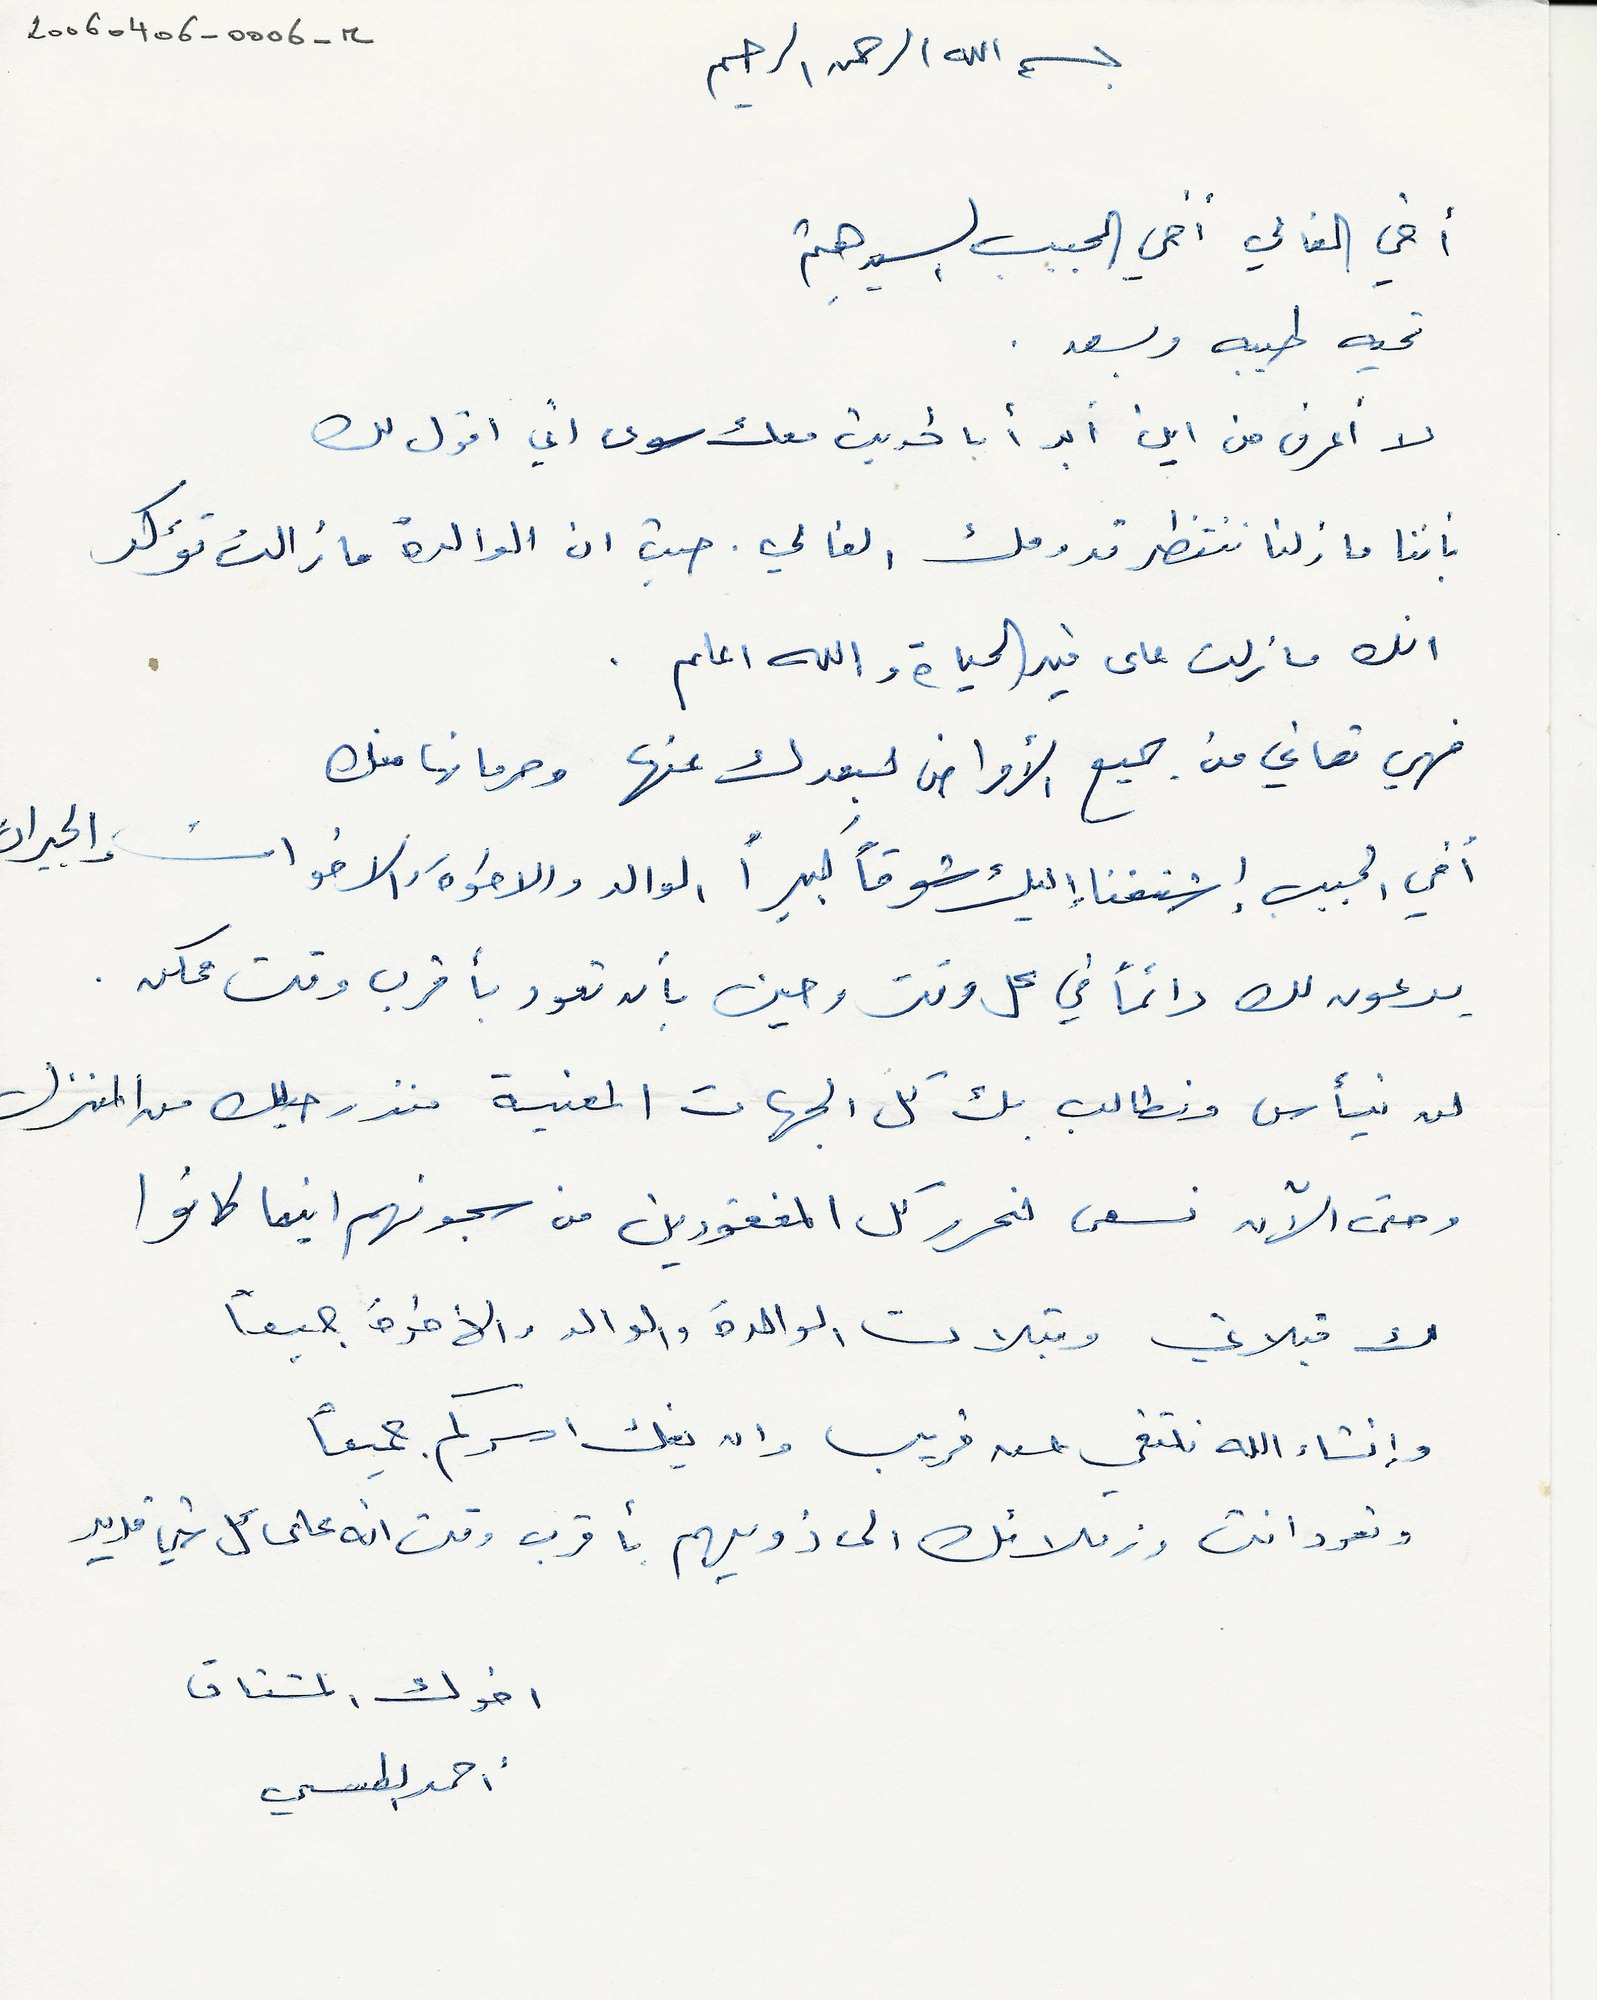 20060406-0006-M
بسم الله الرحمن الرحيم
أخي الغالي أخي الحبيب السيد هيثم
تحيه طيبه وبعد .
لا أعرف من اين أبدأ بالحديث معك سوى اني اقول لك
بأننا مازلنا ننتظر قدومك الغالي . حيث ان الوالدة مازالت تؤكد
انك مازلت على قيد الحياة والله اعلم .
فهي تعاني من جميع الأمراض لبعدك عنها وحرمانها منك
أخي الحبيب إشتقنا إليك شوقاً كبيراً الوالد والاخوة والاخوات والجيران
يدعون لك دائماً في كل وقت وحين بأن تعود بأقرب وقت ممكن .
لن نيأس ونطالب بك كل الجهات المعنية منذ رحيلك من المنزل
وحتى الآن نسعى لنحرر كل المفقودين من سجونهم اينما كانوا
لك قبلاتي وقبلات الوالدة والوالد والأخوة جميعاً
وإنشاء الله نلتقي عن قريب وان يفك اسركم جميعاً
وتعود انت وزملائك الى ذويهم بأقرب وقت انه على كل شيء قدير
اخوك المشتاق
أحمد